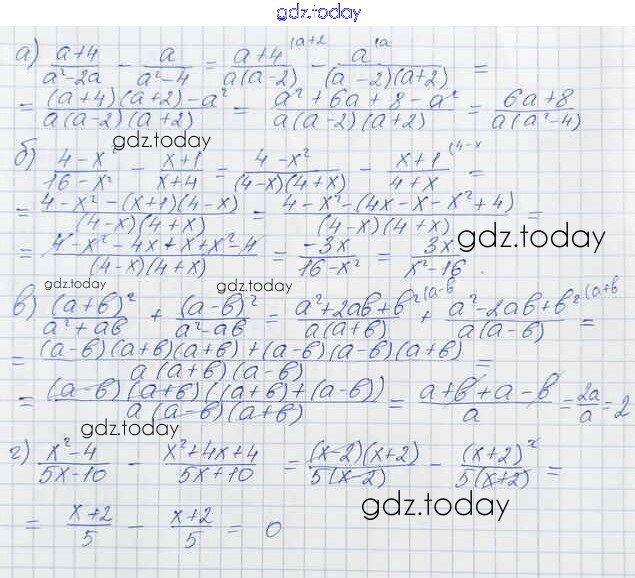 gdz.today
а) (a+4)/(a²-2a) - a/(a²-4) = (a+4)/(a(a-2)) ⁽ᵃ⁺² - a/((a-2)(a+2)) ⁽ᵃ =
= ((a+4)(a+2)-a²)/(a(a-2)(a+2)) = (a²+6a+8-a²)/(a(a-2)(a+2)) = (6a+8)/(a(a²-4))
gdz.today
б) (4-x²)/(16-x²) - (x+1)/(x+4) = (4-x²)/((4-x)(4+x)) - (x+1)/(4+x) ⁽⁴⁻ˣ =
= (4-x²-(x+1)(4-x))/((4-x)(4+x)) = (4-x²-(4x-x-x²+4))/((4-x)(4+x)) =
gdz.today
= (4-x²-4x+x+x²-4)/((4-x)(4+x)) = (-3x)/(16-x²) = 3x/(x²-16).
gdz.today gdz.today
в) (a+b)²/(a²+ab) + (a-b)²/(a²-ab) = (a²+2ab+b²)/(a(a+b)) ⁽ᵃ⁻ᵇ + (a²-2ab+b²)/(a(a-b)) ⁽ᵃ⁺ᵇ =
= ((a-b)(a+b)(a+b)+(a-b)(a-b)(a+b))/(a(a+b)(a-b)) =
= ((a-b)(a+b)((a+b)+(a-b)))/(a(a-b)(a+b)) = (a+b+a-b)/a = 2a/a = 2
gdz.today
г) (x²-4)/(5x-10) - (x²+4x+4)/(5x+10) = ((x-2)(x+2))/(5(x-2)) - (x+2)²/(5(x+2)) =
gdz.today gdz.today
= (x+2)/5 - (x+2)/5 = 0